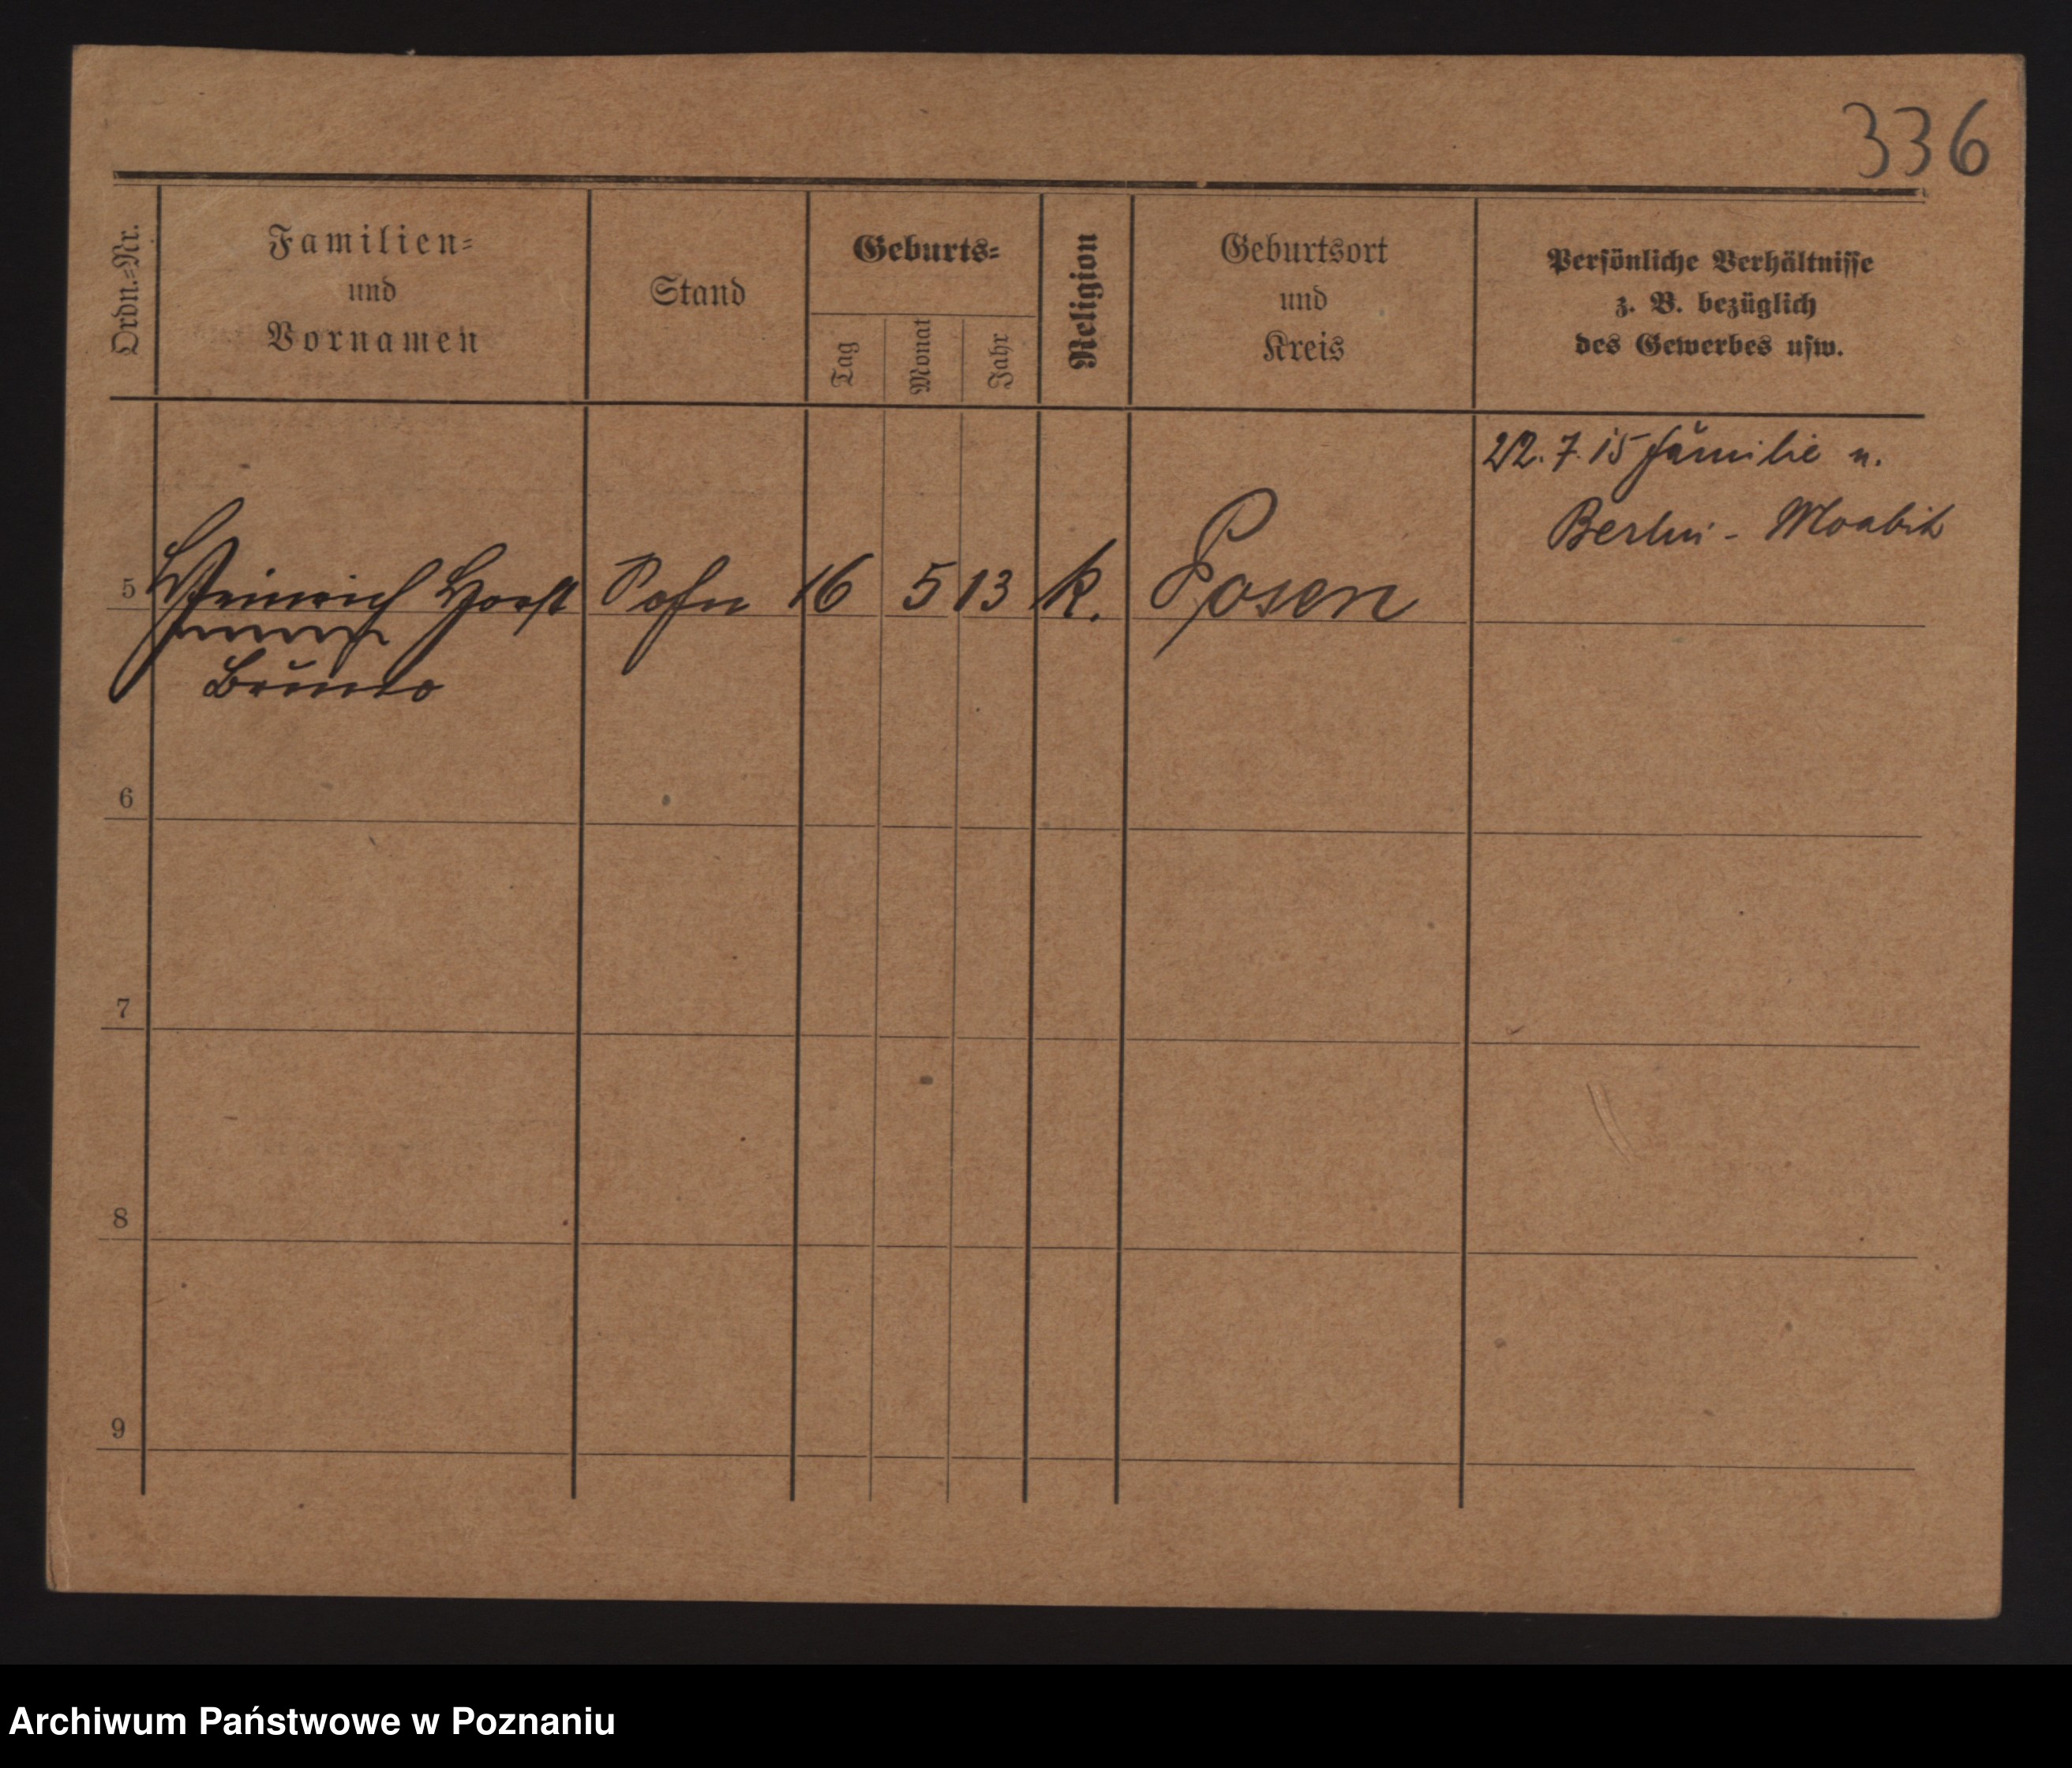 336
Ordn.=Nr.
Familien=
und
Vornamen
Stand
Geburts=
Tag
Monat
Jahr
Religion
Geburtsort
und
Kreis
Persönliche Verhältnisse
z. B. bezüglich
des Gewerbes usw.
22. 7. 15 Familie n.
Berlin - Moabit
5 Heinrich Horst Sohn 16 5 13 k. Posen
Bruno
6
7
8
9
Archiwum Państwowe w Poznaniu